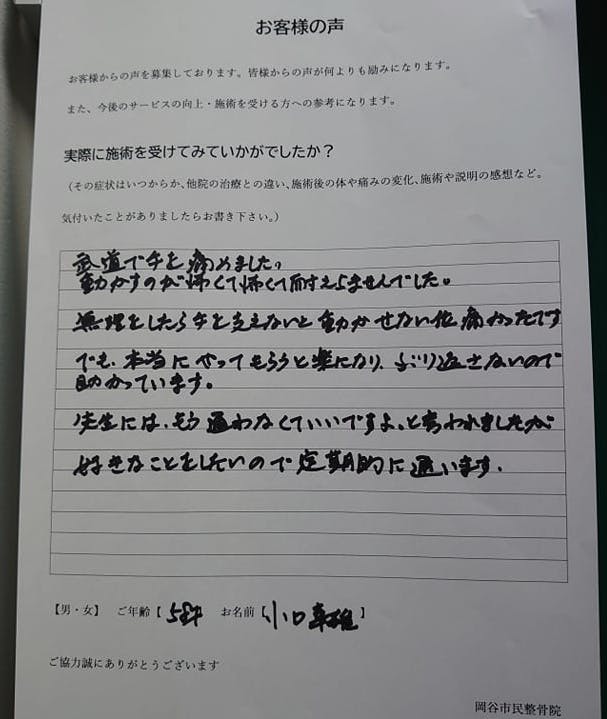 お客様の声
お客様からの声を募集しております。皆様からの声が何よりも励みになります。
また、今後のサービスの向上・施術を受ける方への参考になります。
実際に施術を受けてみていかがでしたか？
（その症状はいつからか、他院の治療との違い、施術後の体や痛みの変化、施術や説明の感想など。
気付いたことがありましたらお書き下さい。）
武道で手を痛めました。
動かすのが怖くて怖くて耐えられませんでした。
無理をしたら手を支えないと動かせない位痛かったです
でも、本当にやってもらうと楽になり、ぶり返さないので
助かっています。
先生には、もう通わなくていいですよ、と言われましたが
好きなことをしたいので定期的に通います.
【男・女】 ご年齢【 58才 お名前【 小口 】
ご協力誠にありがとうございます
岡谷市民整骨院